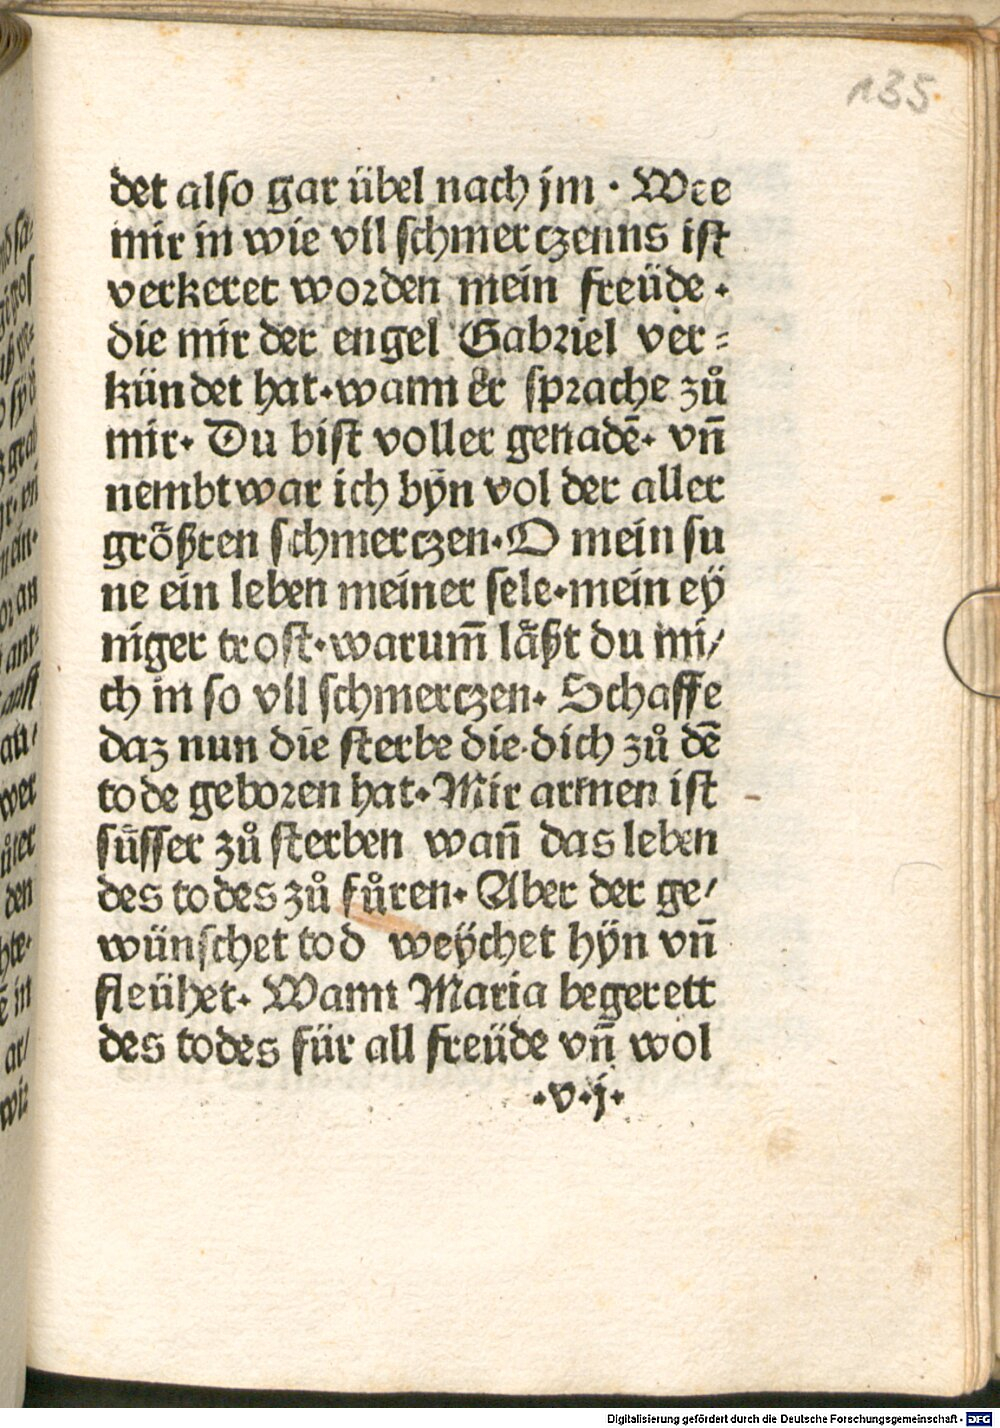 135
det also gar übel nach jm · Wee
mir in wie vil schmerczenns ist
verkeret worden mein freüde ·
die mir der engel Gabriel ver=
kündet hat · wann Er sprache zů
mir · Du bist voller genadē · vn̄
nembt war ich bÿn vol der aller
größten schmerczen · O mein su
ne ein leben meiner sele · mein eÿ
niger trost · warum̄ läßt du mi/
ch in so vil schmerczen · Schaffe
daz nun die sterbe die · dich zů dē
tode geboren hat · Mir armen ist
süsser zů sterben wan̄ das leben
des todes zů fůren · Aber der ge/
wünschet tod weÿchet hÿn vn̄
fleühet · Wann Maria begerett
des todes für all freüde vn̄ wol
· v · j ·
Digitalisierung gefördert durch die Deutsche Forschungsgemeinschaft - DFG